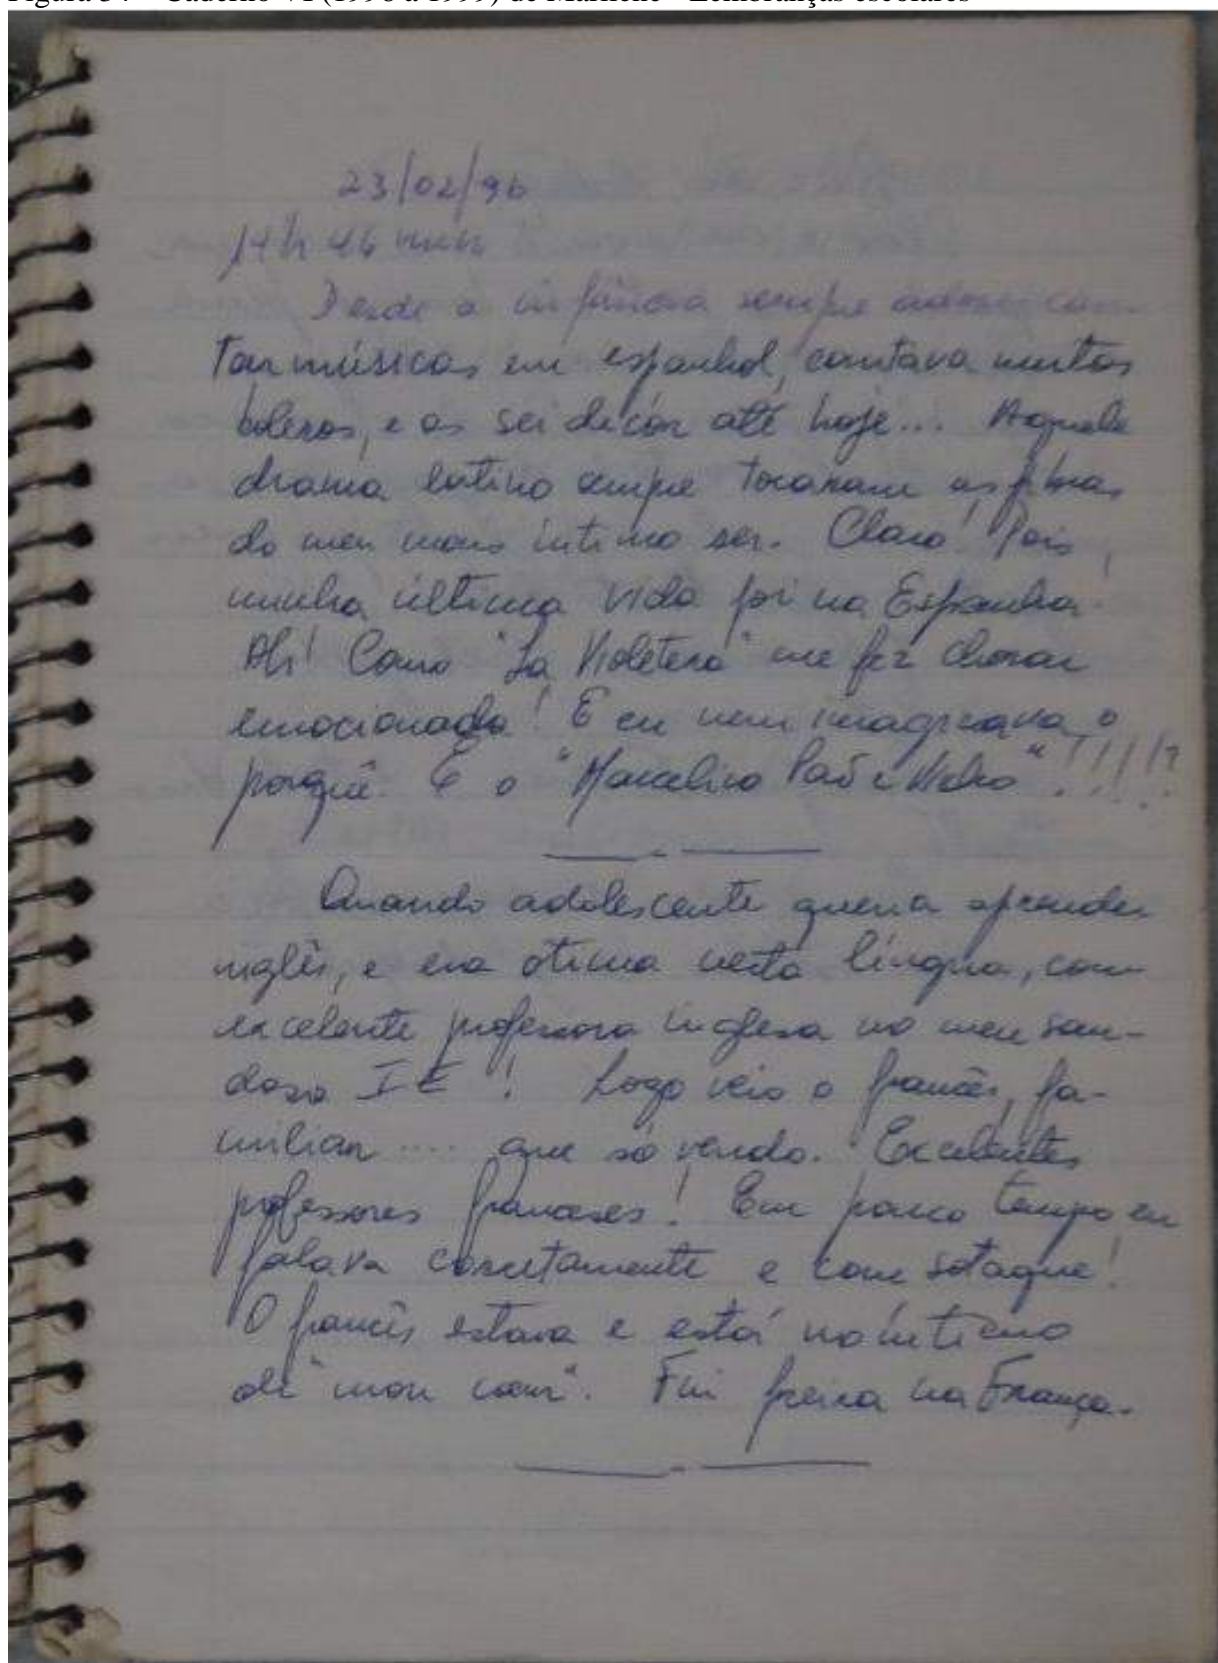 23/02/96
14h 46 min
Desde a infância sempre adorei can-
tar músicas em espanhol, cantava muitos
boleros, e os sei decór até hoje... Aquele
drama latino sempre tocaram as fibras
do meu mais íntimo ser. Claro! Pois,
minha última vida foi na Espanha!
Ah! Como "La Violetera" me fez chorar
emocionada! E eu nem imaginava o
porquê. E o "Marcelino Pão e Vinho"!!!!?
Quando adolescente queria aprender
inglês, e era ótima nesta língua, com
excelente professora inglesa no meu sau-
doso IE! Logo veio o francês, fa-
miliar .... que só vendo. Excelentes
professores franceses! Em pouco tempo eu
falava corretamente e com sotaque!
O francês estava e está no íntimo
de "mon coeur". Fui freira na França.